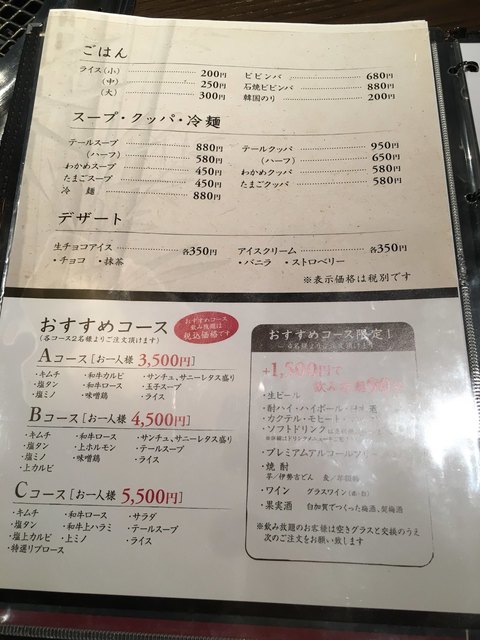 ごはん
ライス(小) 200円
(中) 250円
(大) 300円
ビビンバ 680円
石焼ビビンバ 880円
韓国のり 200円
スープ・クッパ・冷麺
テールスープ 880円
(ハーフ) 580円
わかめスープ 450円
たまごスープ 450円
冷 麺 880円
テールクッパ 950円
(ハーフ) 650円
わかめクッパ 580円
たまごクッパ 580円
デザート
生チョコアイス 各350円
・チョコ ・抹茶
アイスクリーム 各350円
・バニラ ・ストロベリー
※表示価格は税別です
おすすめコース
(各コース2名様よりご注文頂けます)
おすすめコース
飲み放題は
税込価格です
Aコース [お一人様 3,500円]
・キムチ ・和牛カルビ ・サンチュ、サニーレタス盛り
・塩タン ・和牛ロース ・玉子スープ
・塩ミノ ・味噌鶏 ・ライス
Bコース [お一人様 4,500円]
・キムチ ・和牛ロース ・サンチュ、サニーレタス盛り
・塩タン ・上ホルモン ・テールスープ
・塩ミノ ・味噌鶏 ・ライス
・上カルビ
Cコース [お一人様 5,500円]
・キムチ ・和牛ロース ・サラダ
・塩タン ・和牛上ハラミ ・テールスープ
・塩上カルビ ・上ミノ ・ライス
・特選リブロース
おすすめコース限定!
名様よりご注文頂けます
+1,500円で
飲み放題
・生ビール
・酎ハイ・ハイボール・日本酒
・カクテル・モヒート
・ソフトドリンク
・プレミアムアルコールフリー
・焼 酎
芋/伊勢吉どん 麦/
・ワイン グラスワイン(赤・白)
・果実酒 白加賀でつくった梅酒、
※飲み放題のお客様は空きグラスと交換のうえ
次のご注文をお願い致します